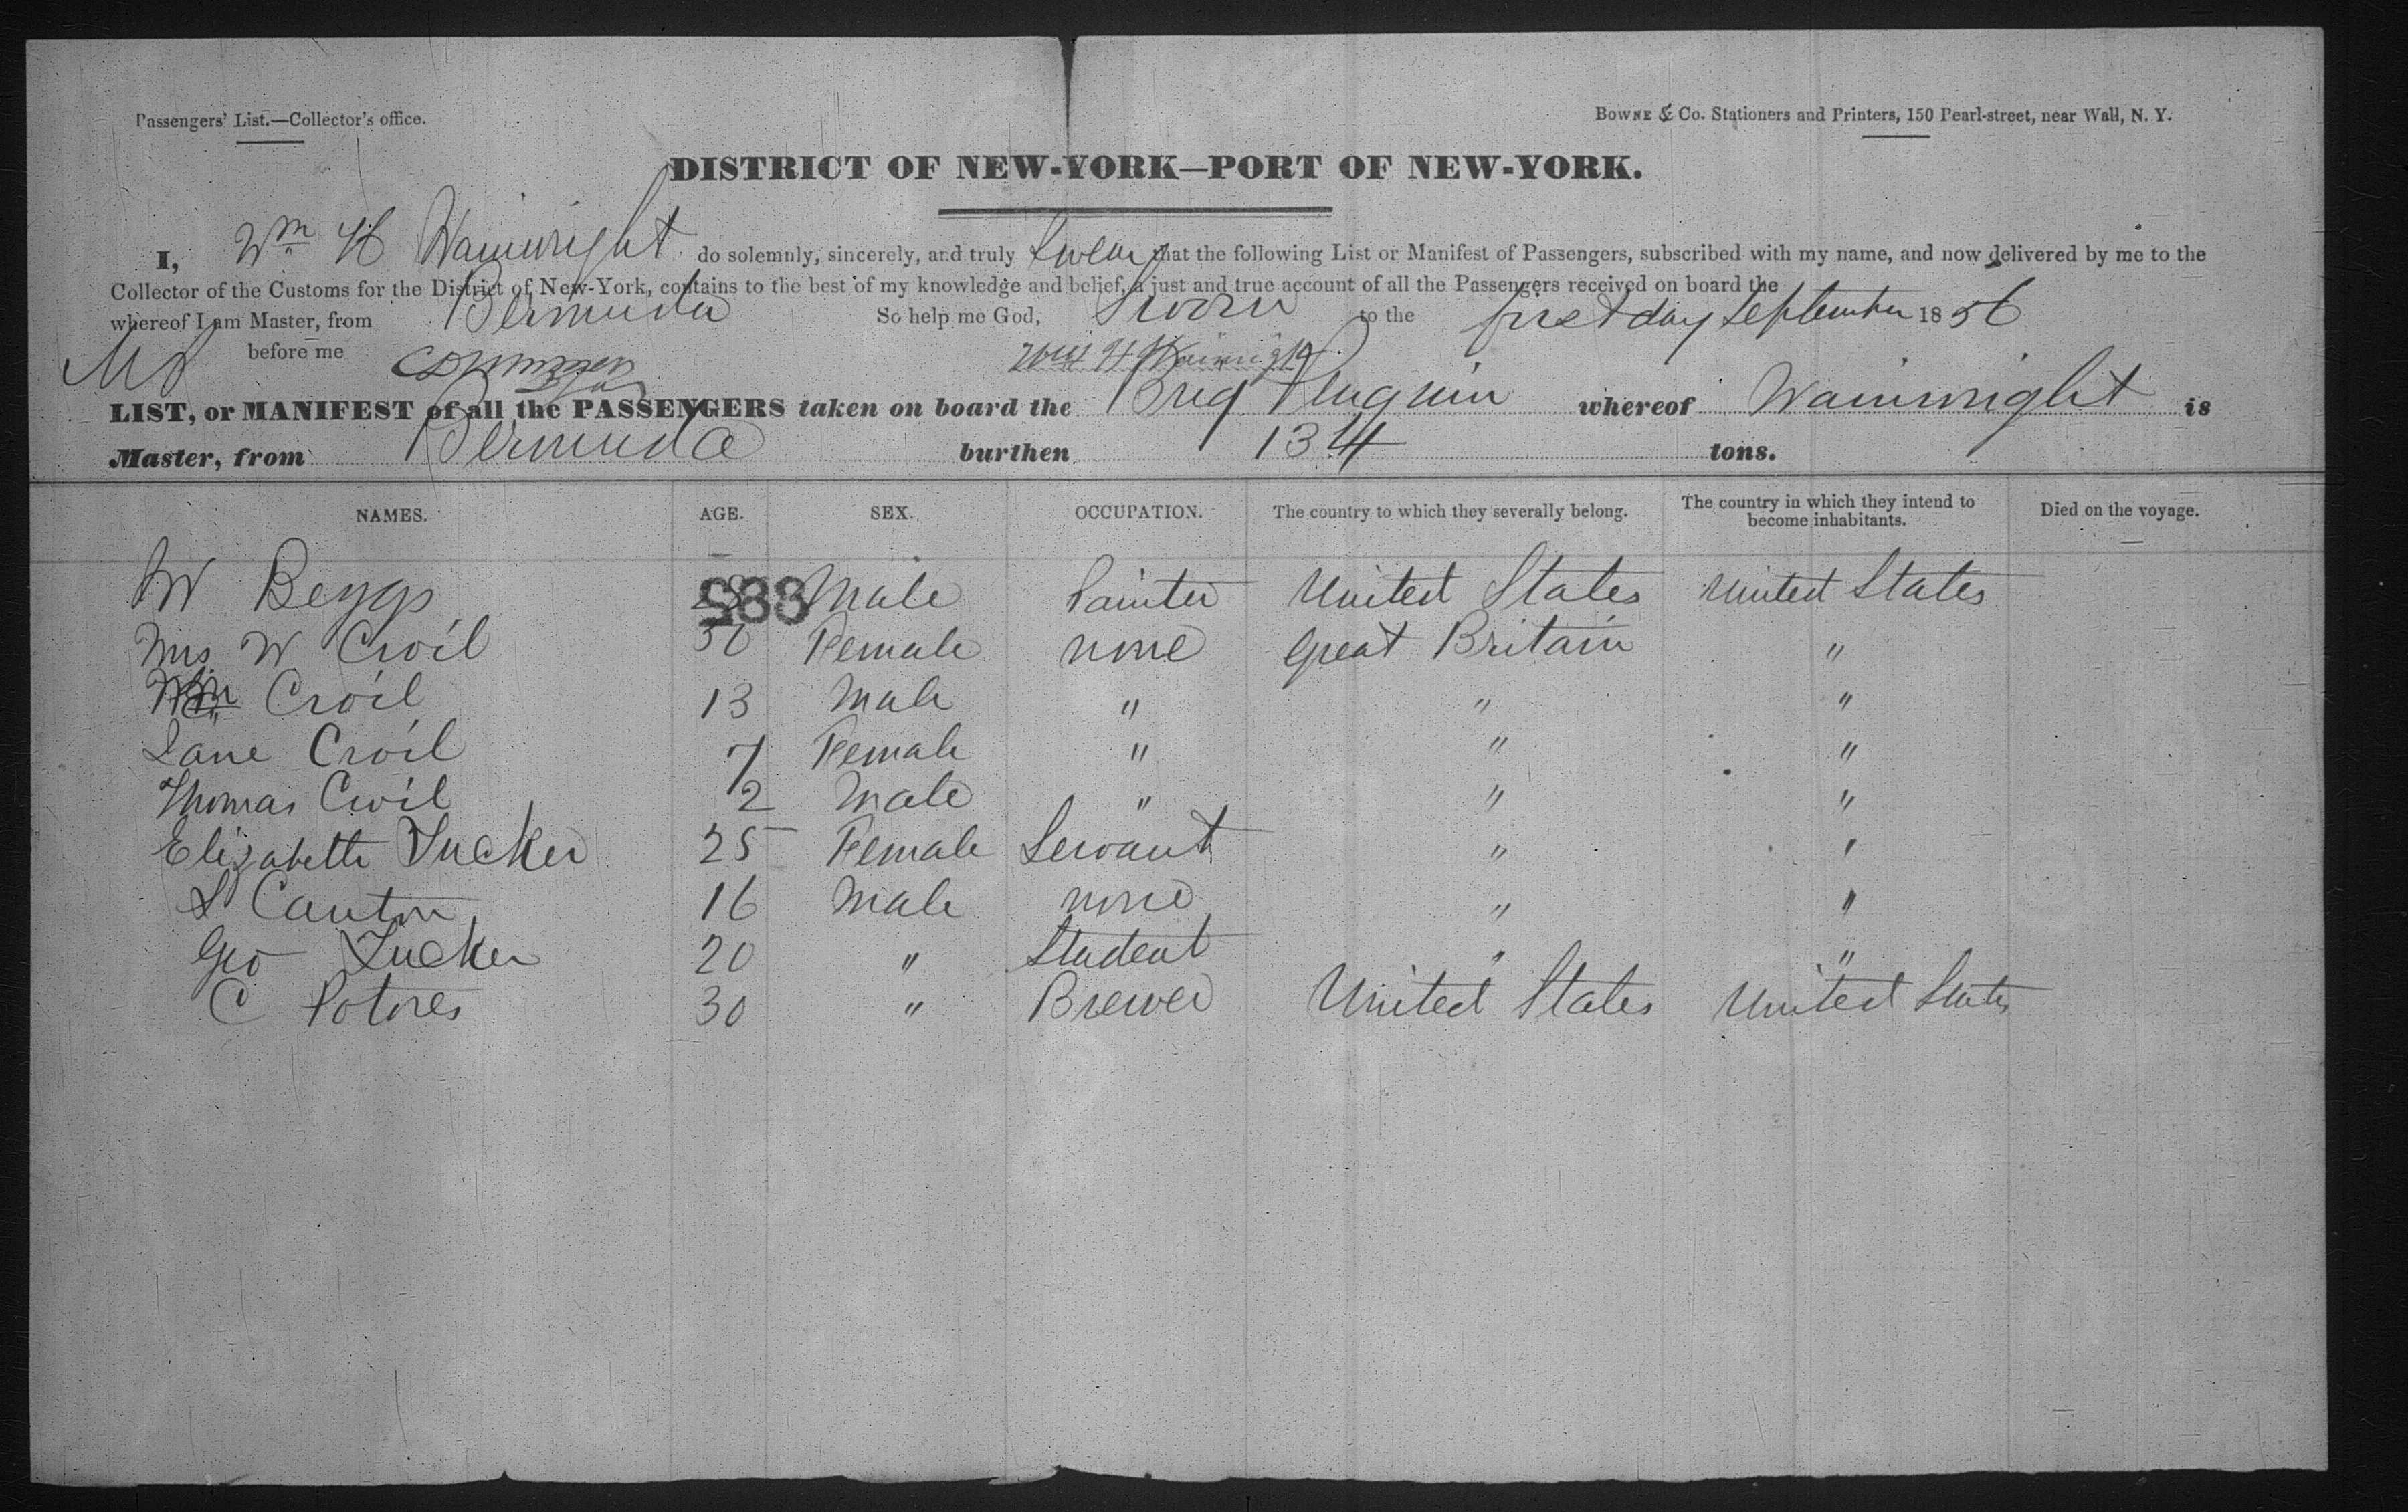 Passengers' List.—Collector's office.
Bowne & Co. Stationers and Printers, 150 Pearl-street, near Wall, N. Y.
DISTRICT OF NEW-YORK—PORT OF NEW-YORK.
I, Wm H Wainwright do solemnly, sincerely, and truly Swear that the following List or Manifest of Passengers, subscribed with my name, and now delivered by me to the
Collector of the Customs for the District of New-York, contains to the best of my knowledge and belief, a just and true account of all the Passengers received on board the
whereof I am Master, from Bermuda So help me God, Sworn to the first day September 1856
before me Wm H Wainwright
LIST, or MANIFEST of all the PASSENGERS taken on board the Brig Penguin whereof Wainwright is
Master, from Bermuda burthen 134 tons.
NAMES. AGE. SEX. OCCUPATION. The country to which they severally belong. The country in which they intend to become inhabitants. Died on the voyage.
W Beggs 883 Male Painter United States United States
Mrs W Croil Female none Great Britain "
Croil 13 Male " " "
Jane Croil 7 Female " " "
Thomas Croil 2 Male " " "
Elizabeth Tucker 25 Female Servant " "
S Canton 16 Male none " "
Geo Tucker 20 " Student " "
C 30 " Brewer United States United States